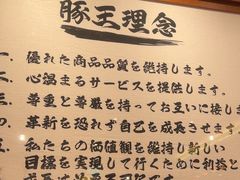 豚王理念
一、優れた商品品質を維持します。
二、心温まるサービスを提供します。
三、尊重と尊厳を持ってお互いに接しま
四、革新を恐れず自己を成長させます
五、私たちの価値観を維持し新しい
目標を実現して行くために利益と